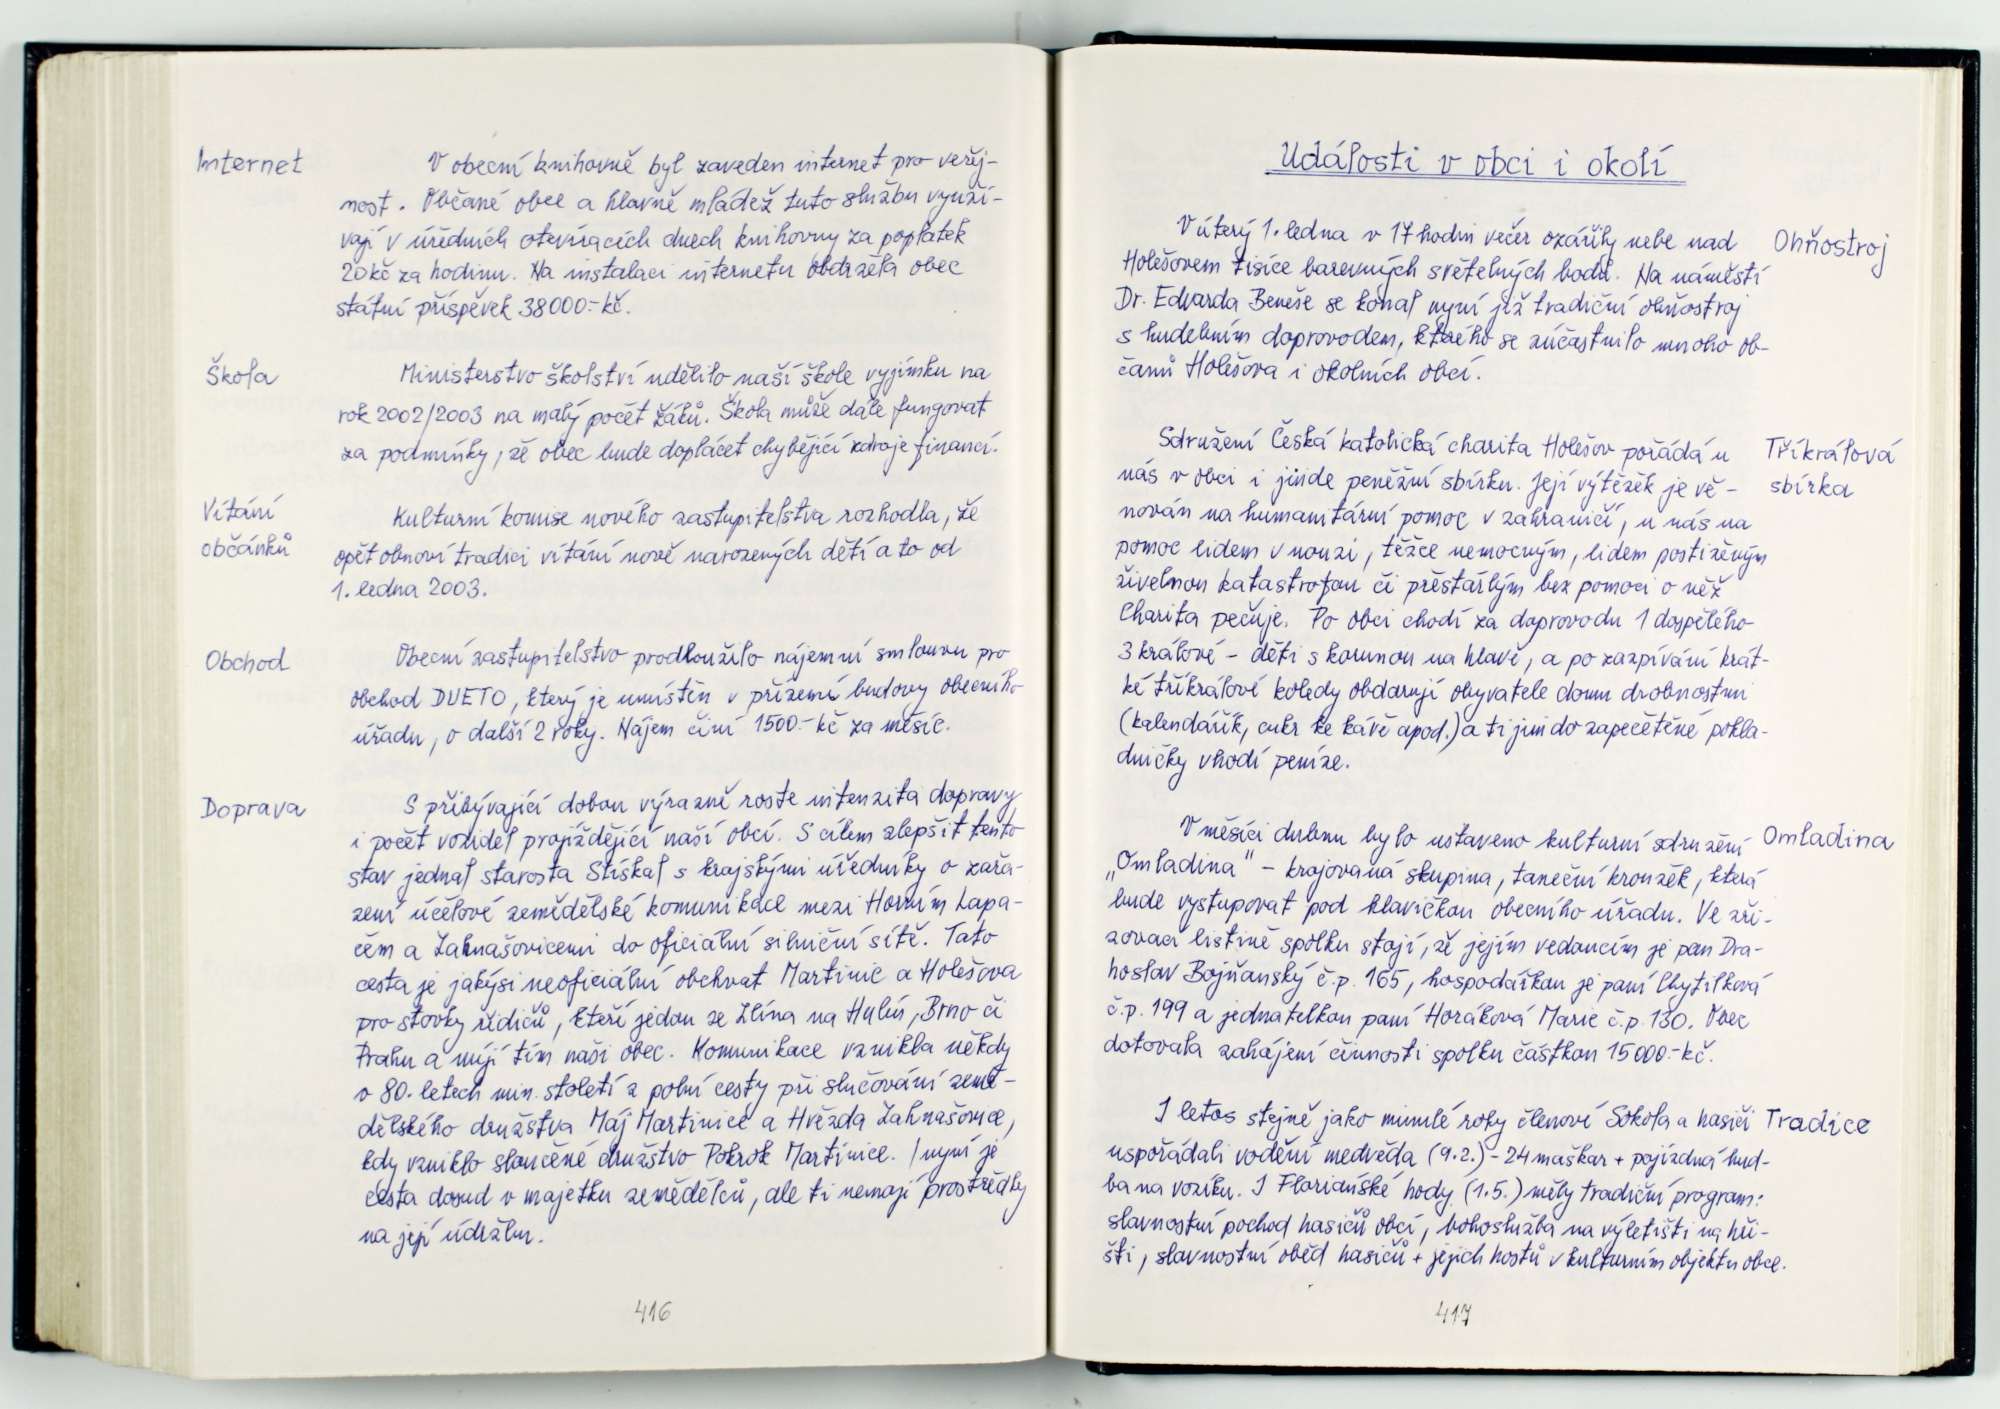 Internet
V obecní knihovně byl zaveden internet pro veřej-
nost. Občané obce a hlavně mládež tuto službu využí-
vají v úředních otevíracích dnech knihovny za poplatek
20 kč za hodinu. Na instalaci internetu obdržela obec
státní příspěvek 38000.- kč.
Škola
Ministerstvo školství udělilo naší škole vyjímku na
rok 2002/2003 na malý počet žáků. Škola může dále fungovat
za podmínky, že obec bude doplácet chybějící zdroje financí.
Vítání
občánků
Kulturní komise nového zastupitelstva rozhodla, že
opět obnoví tradici vítání nově narozených dětí a to od
1. ledna 2003.
Obchod
Obecní zastupitelstvo prodloužilo nájemní smlouvu pro
obchod DUETO, který je umístěn v přízemí budovy obecního
úřadu, o další 2 roky. Nájem činí 1500.- kč za měsíc.
Doprava
S přibývající dobou výrazně roste intenzita dopravy
i počet vozidel projíždějící naší obcí. S cílem zlepšit tento
stav jednal starosta Stískal s krajskými úředníky o zařa-
zení účelové zemědělské komunikace mezi Horním Lapa-
čem a Žalnašovicemi do oficiální silniční sítě. Tato
cesta je jakýsi neoficiální obchvat Martinic a Holešova
pro stovky řidičů, kteří jedou ze Zlína na Hulín, Brno či
Prahu a míjí tím naši obec. Komunikace vznikla někdy
v 80. letech min. století z polní cesty při slučování země-
dělského družstva Máj Martinice a Hvězda Žalnašovice,
kdy vzniklo sloučené družstvo Pokrok Martinice. I nyní je
cesta dosud v majetku zemědělců, ale ti nemají prostředky
na její údržbu.
416
Události v obci i okolí
V úterý 1. ledna v 17 hodin večer ozářily nebe nad
Holešovem tisíce barevných světelných bodů. Na náměstí
Dr. Edvarda Beneše se konal nyní již tradiční ohňostroj
s hudebním doprovodem, kterého se zúčastnilo mnoho ob-
čanů Holešova i okolních obcí.
Ohňostroj
Sdružení Česká katolická charita Holešov pořádá u
nás v obci i jinde peněžní sbírku. Její výtěžek je vě-
nován na humanitární pomoc v zahraničí, u nás na
pomoc lidem v nouzi, těžce nemocným, lidem postiženým
živelnou katastrofou či přestárlým bez pomoci o něž
Charita pečuje. Po obci chodí za doprovodu 1 dospělého
3 králové - děti s korunou na hlavě, a po zazpívání krát-
ké tříkrálové koledy obdarují obyvatele domu drobnostmi
(kalendářík, cukr ke kávě apod.) a ti jim do zapečetěné pokla-
dničky vhodí peníze.
Tříkrálová
sbírka
V měsíci dubnu bylo ustaveno kulturní sdružení
„Omladina" - krojovaná skupina, taneční kroužek, která
bude vystupovat pod hlavičkou obecního úřadu. Ve zři-
zovací listině spolku stojí, že jejím vedoucím je pan Dra-
hoslav Bojňanský č.p. 165, hospodářkou je paní Chytilková
č.p. 199 a jednatelkou paní Horáková Marie č.p. 130. Obec
dotovala zahájení činnosti spolku částkou 15000.- kč.
Omladina
I letos stejně jako minulé roky členové Sokola a hasiči
uspořádali vodění medvěda (9.2.) - 24 maškar + pojízdná hud-
ba na vozíku. I Floriánské hody (1.5.) měly tradiční program:
slavnostní pochod hasičů obcí, bohoslužba na výletišti na hři-
šti, slavnostní oběd hasičů + jejich hostů v kulturním objektu obce.
Tradice
417